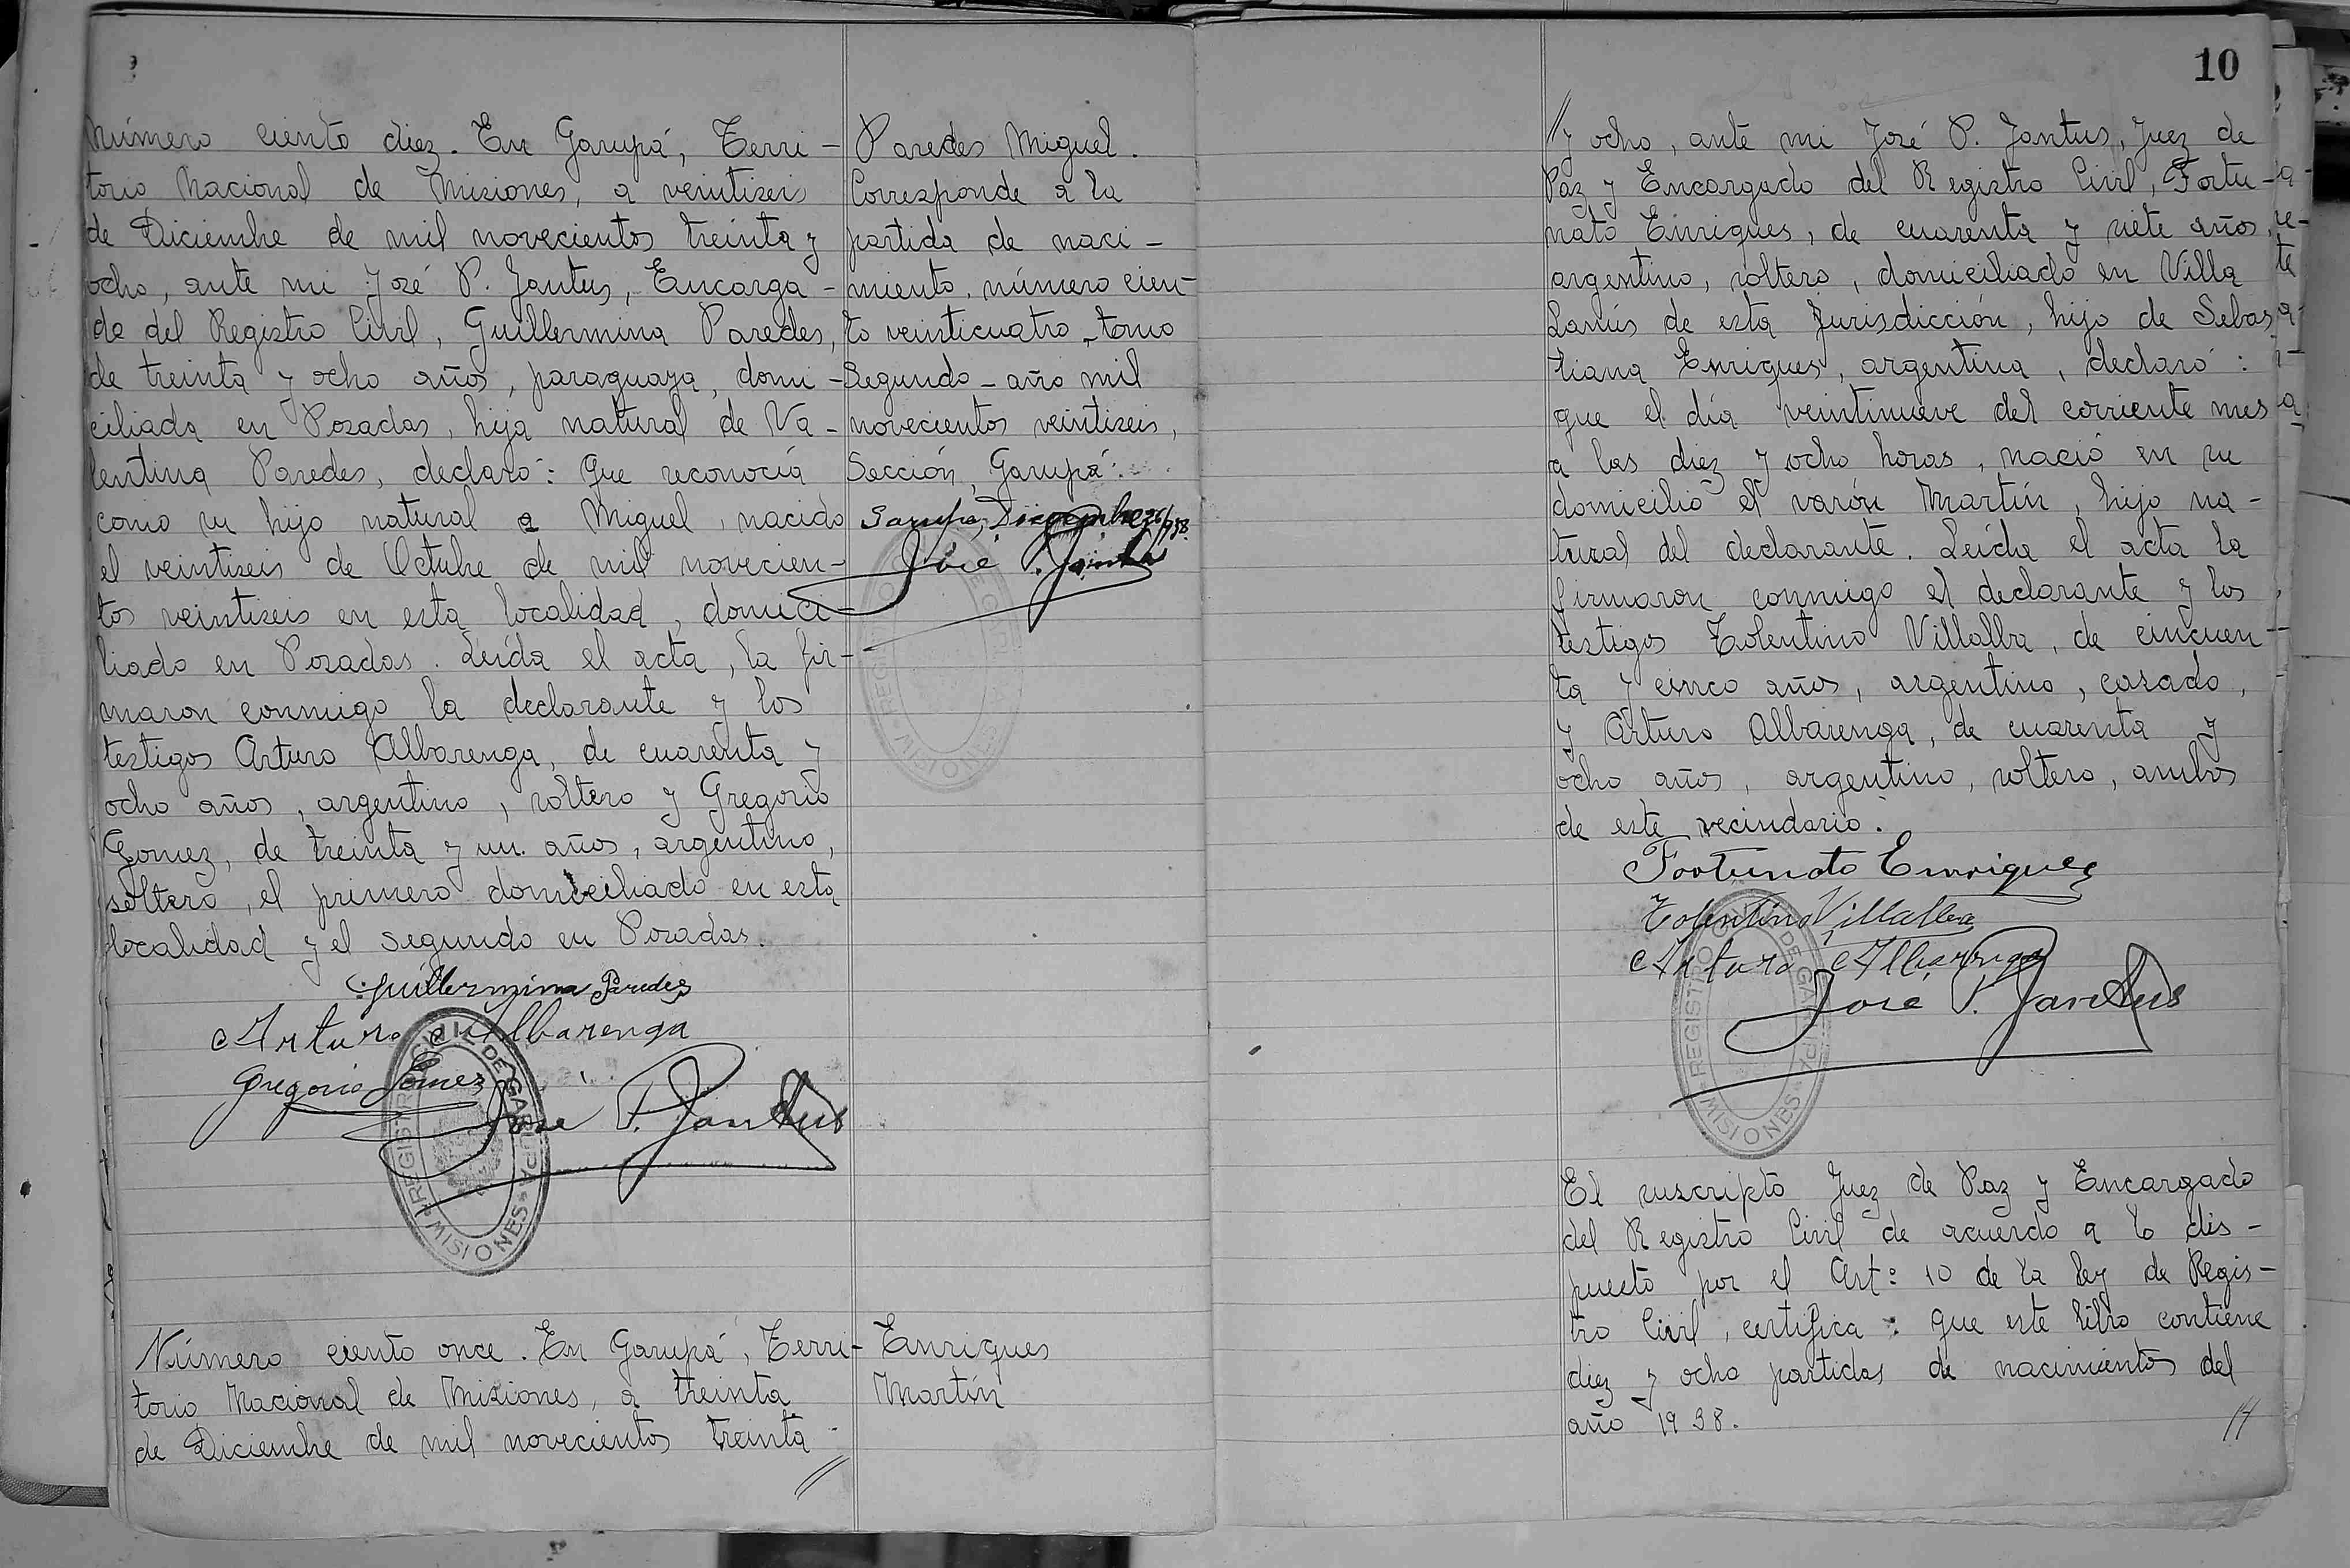 Número ciento diez. En Garupá, Terri-
torio Nacional de Misiones, a veintiseis
de Diciembre de mil novecientos treinta y
ocho, ante mi José P. Jantus, Encarga-
do del Registro Civil, Guillermina Paredes,
de treinta y ocho años, paraguaya, domi-
ciliada en Posadas, hija natural de Va-
lentina Paredes, declaró: Que reconocía
como su hijo natural a Miguel, nacido
el veintiseis de Octubre de mil novecien-
tos veintiseis en esta localidad, domici-
liado en Posadas. Leída el acta, la fir-
maron conmigo la declarante y los
testigos Arturo Albarenga, de cuarenta y
ocho años, argentino, soltero y Gregorio
Gomez, de treinta y un años, argentino,
soltero, el primero domiciliado en esta
localidad y el segundo en Posadas.
Guillermina Paredes
Arturo Albarenga
Gregorio Gomez
José P. Jantus
REGISTRO CIVIL DE GARUPA
MISIONES
Paredes Miguel.
Corresponde a la
partida de naci-
miento, número cien-
to veinticuatro - tomo
Segundo - año mil
novecientos veintiseis,
Sección, Garupá.
Garupá, Diciembre 26/938.
José P. Jantus
Número ciento once. En Garupá, Terri-
torio Nacional de Misiones, a treinta
de Diciembre de mil novecientos treinta
//
Enriques
Martín
10
//y ocho, ante mi José P. Jantus, Juez de
Paz y Encargado del Registro Civil, Fortu-
nato Enriques, de cuarenta y siete años,
argentino, soltero, domiciliado en Villa
Lanús de esta Jurisdicción, hijo de Sebas
tiana Enriques, argentina, declaró:
que el día veintinueve del corriente mes
a las diez y ocho horas, nació en su
domicilio el varón Martín, hijo na-
tural del declarante. Leída el acta la
firmaron conmigo el declarante y los
testigos Tolentino Villalba, de cincuen-
ta y cinco años, argentino, casado,
y Arturo Albarenga, de cuarenta y
ocho años, argentino, soltero, ambos
de este vecindario.
Fortunato Enriquez
Tolentino Villalba
Arturo Albarenga
José P. Jantus
REGISTRO CIVIL DE GARUPA
MISIONES
El suscripto Juez de Paz y Encargado
del Registro Civil de acuerdo a lo dis-
puesto por el Art: 10 de la ley de Regis-
tro Civil, certifica: que este libro contiene
diez y ocho partidas de nacimientos del
año 1938.
//